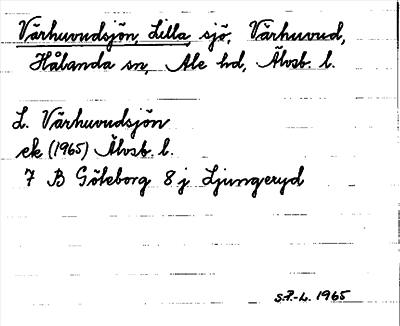 Värhuvudsjön, Lilla, sjö, Värhuvud,
Hålanda sn, Ale hd, Älvsb. l.
L. Värhuvudsjön
ek (1965) Älvsb. l.
7 B Göteborg 8 j Ljungeryd
S.P.-L. 1965